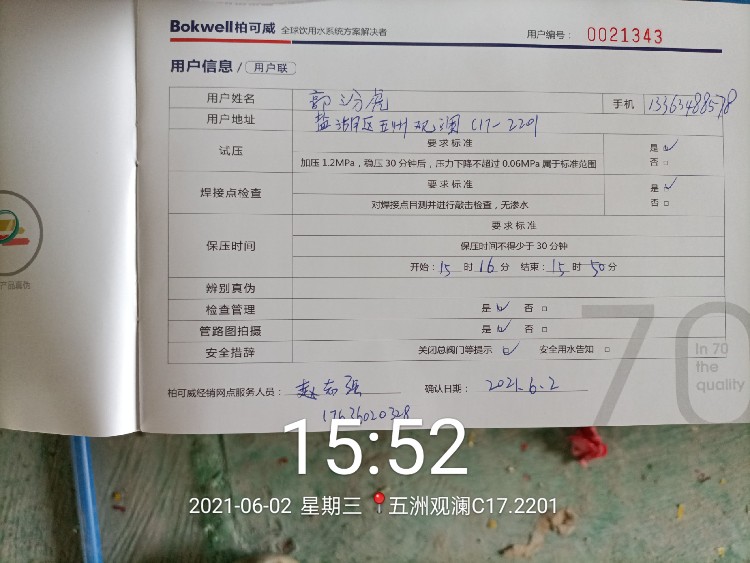 Bokwell柏可威 全球饮用水系统方案解决者
用户编号： 0021343
用户信息/ 用户联
用户姓名 郭汾虎 手机 13363488578
用户地址 盐湖区五州观澜 C17-2201
试压 要求标准 是
加压 1.2MPa，稳压 30 分钟后，压力下降不超过 0.06MPa 属于标准范围 否
焊接点检查 要求标准 是
对焊接点目测并进行敲击检查，无渗水 否
保压时间 要求标准
保压时间不得少于 30 分钟
开始：15 时 16 分 结束：15 时 50 分
辨别真伪
检查管理 是 否
管路图拍摄 是 否
安全措辞 关闭总阀门等提示 安全用水告知
产品真伪
70
In 70
the
quality
柏可威经销网点服务人员： 赵志强 确认日期： 2021.6.2
17636020328
15:52
2021-06-02 星期三 五洲观澜C17.2201